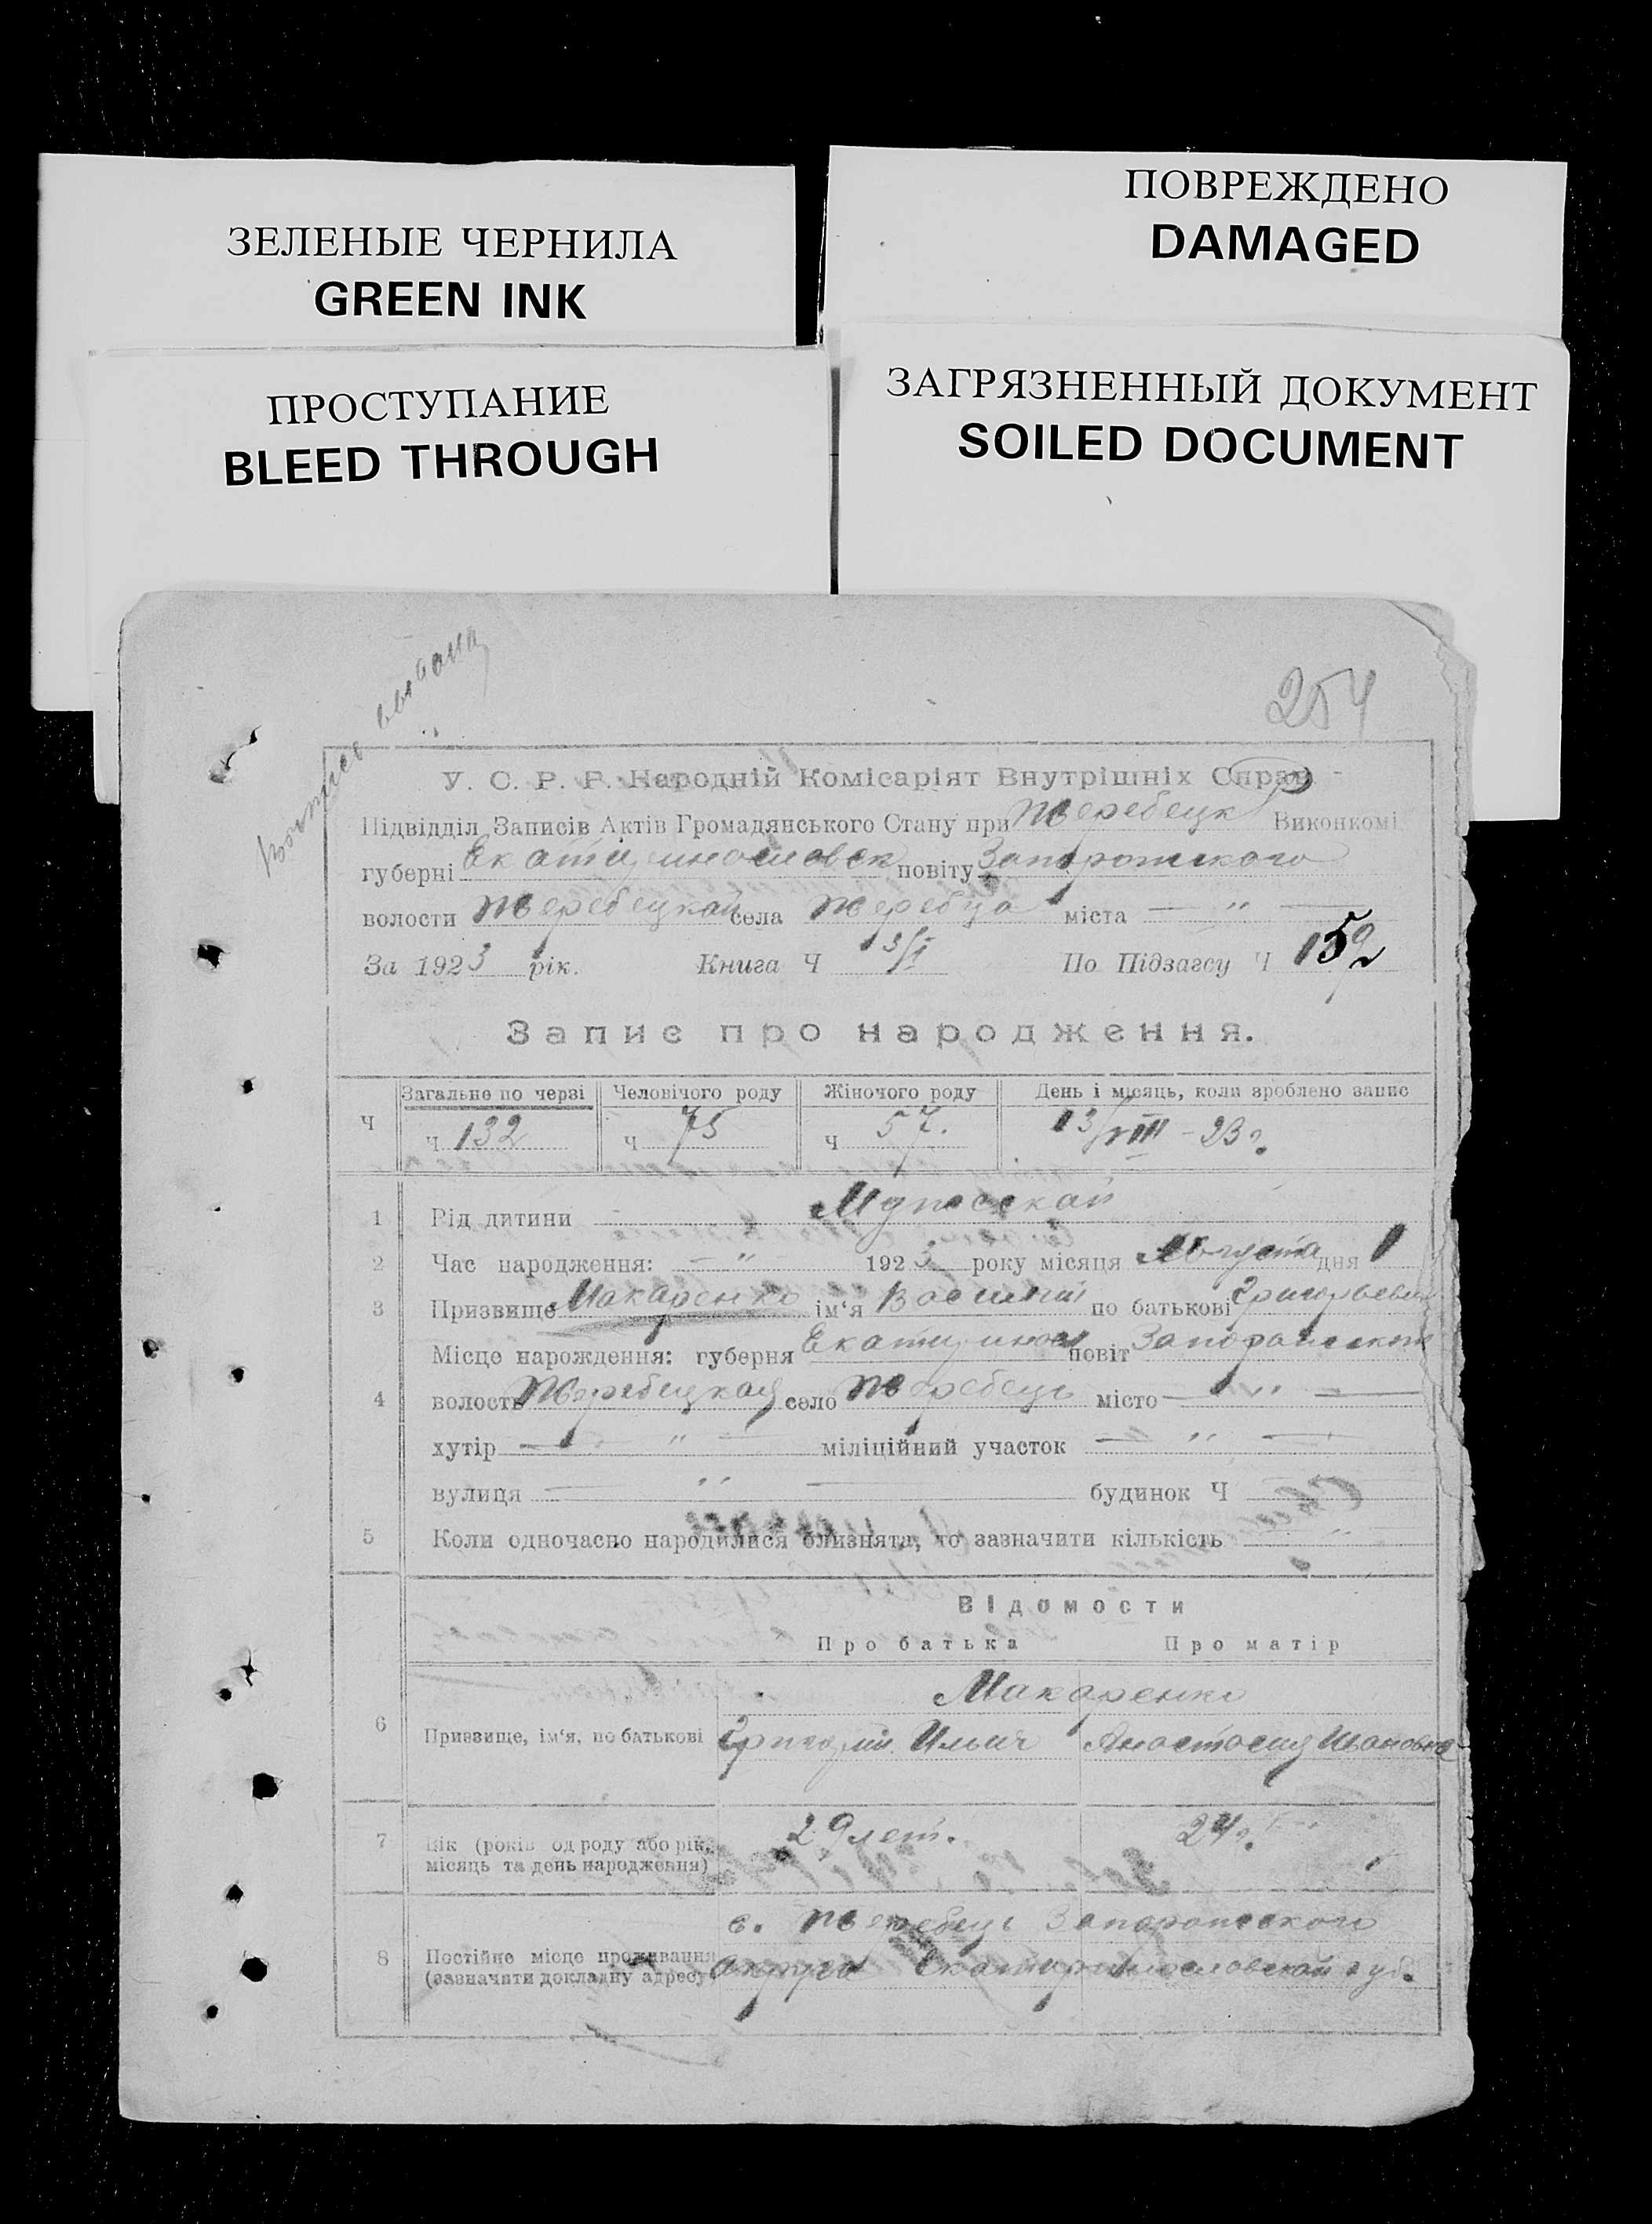 ЗЕЛЕНЫЕ ЧЕРНИЛА
GREEN INK
ПОВРЕЖДЕНО
DAMAGED
ПРОСТУПАНИЕ
BLEED THROUGH
ЗАГРЯЗНЕННЫЙ ДОКУМЕНТ
SOILED DOCUMENT
254
У. С. Р. Р. Народній Комісаріят Внутрішніх Справ
Підвідділ Записів Актів Громадянського Стану при Жеребецк Виконкомі
губерні Екатеринославск повіту Запорожского
волости Жеребецкой села Жеребца міста — " —
За 1923 рік. Книга Ч 3/I По Підзагсу Ч 159
Запис про народження.
Загальне по черзі Человічого роду Жіночого роду День і місяць, коли зроблено запис
Ч ч 132 ч 75 ч 57. 13/VIII - 23 г.
1 Рід дитини Мужеской
2 Час народження: — " — 1923 року місяця Августа дня 1
3 Призвище Макаренко ім'я Василий по батькові Григорьевич
4 Місце нарождення: губерня Екатеринос повіт Запорожском
волость Жеребецкая село Жеребець місто — " —
хутір — " — міліційний участок — " —
вулиця — " — будинок Ч
5 Коли одночасно народилися близнята, то зазначити кількість "
Відомости
Про батька Про матір
Макаренко
6 Призвище, ім'я, по батькові Григорий Ильич Анастасия Ивановна
7 Вік (років од роду або рік, місяць та день народження) 29 лет. 24 г.
с. Жеребець Запорожского
8 Постійне місце проживання (зазначити докладну адресу) округа Екатеринославской губ.